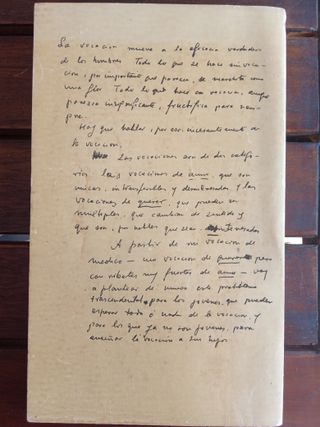 La vocación mueve a la eficacia verdadera
de los hombres. Todo lo que se hace sin voca-
ción, por importante que parezca, se marchita como
una flor. Todo lo que se hace con vocación, aunque
parezca insignificante, fructifica para siem-
pre.
Hay que hablar, por eso, incesantemente de
la vocación.
Las vocaciones son de dos catego-
rías: las vocaciones de amor, que son
únicas, intransferibles y desinteresadas, y las
vocaciones de querer, que pueden ser
múltiples, que cambian de sentido y
que son, por nobles que sean, interesadas
A partir de mi vocación de
médico — una vocación de querer pero
con ribetes muy fuertes de amor — voy
a plantear de nuevo este problema
trascendental, para los jóvenes, que pueden
esperar todo o nada de la vocación y
para los que ya no son jóvenes, para
enseñar la vocación a sus hijos